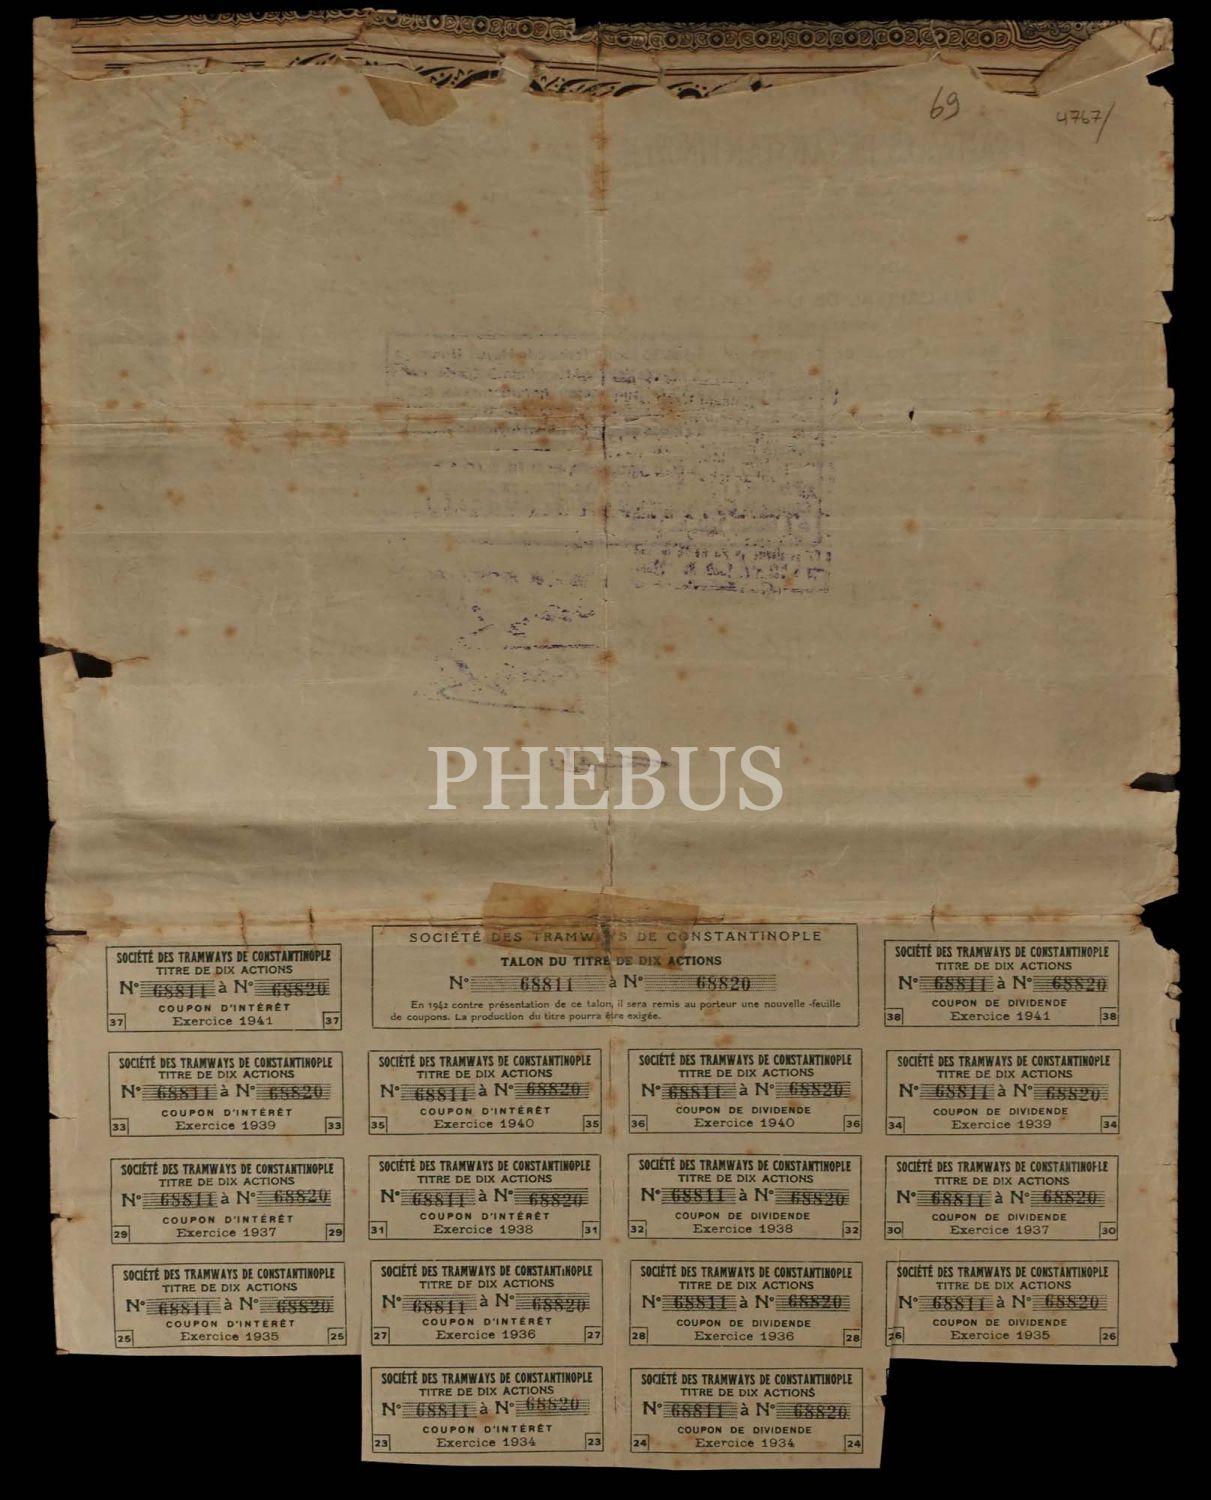 69
4767/
PHEBUS
SOCIÉTÉ DES TRAMWAYS DE CONSTANTINOPLE
TITRE DE DIX ACTIONS
N° 68811 à N° 68820
COUPON D'INTÉRÊT
37 Exercice 1941 37
SOCIÉTÉ DES TRAMWAYS DE CONSTANTINOPLE
TALON DU TITRE DE DIX ACTIONS
N° 68811 à N° 68820
En 1942 contre présentation de ce talon, il sera remis au porteur une nouvelle feuille
de coupons. La production du titre pourra être exigée.
SOCIÉTÉ DES TRAMWAYS DE CONSTANTINOPLE
TITRE DE DIX ACTIONS
N° 68811 à N° 68820
COUPON DE DIVIDENDE
38 Exercice 1941 38
SOCIÉTÉ DES TRAMWAYS DE CONSTANTINOPLE
TITRE DE DIX ACTIONS
N° 68811 à N° 68820
COUPON D'INTÉRÊT
33 Exercice 1939 33
SOCIÉTÉ DES TRAMWAYS DE CONSTANTINOPLE
TITRE DE DIX ACTIONS
N° 68811 à N° 68820
COUPON D'INTÉRÊT
35 Exercice 1940 35
SOCIÉTÉ DES TRAMWAYS DE CONSTANTINOPLE
TITRE DE DIX ACTIONS
N° 68811 à N° 68820
COUPON DE DIVIDENDE
36 Exercice 1940 36
SOCIÉTÉ DES TRAMWAYS DE CONSTANTINOPLE
TITRE DE DIX ACTIONS
N° 68811 à N° 68820
COUPON DE DIVIDENDE
34 Exercice 1939 34
SOCIÉTÉ DES TRAMWAYS DE CONSTANTINOPLE
TITRE DE DIX ACTIONS
N° 68811 à N° 68820
COUPON D'INTÉRÊT
29 Exercice 1937 29
SOCIÉTÉ DES TRAMWAYS DE CONSTANTINOPLE
TITRE DE DIX ACTIONS
N° 68811 à N° 68820
COUPON D'INTÉRÊT
31 Exercice 1938 31
SOCIÉTÉ DES TRAMWAYS DE CONSTANTINOPLE
TITRE DE DIX ACTIONS
N° 68811 à N° 68820
COUPON DE DIVIDENDE
32 Exercice 1938 32
SOCIÉTÉ DES TRAMWAYS DE CONSTANTINOPLE
TITRE DE DIX ACTIONS
N° 68811 à N° 68820
COUPON DE DIVIDENDE
30 Exercice 1937 30
SOCIÉTÉ DES TRAMWAYS DE CONSTANTINOPLE
TITRE DE DIX ACTIONS
N° 68811 à N° 68820
COUPON D'INTÉRÊT
25 Exercice 1935 25
SOCIÉTÉ DES TRAMWAYS DE CONSTANTINOPLE
TITRE DE DIX ACTIONS
N° 68811 à N° 68820
COUPON D'INTÉRÊT
27 Exercice 1936 27
SOCIÉTÉ DES TRAMWAYS DE CONSTANTINOPLE
TITRE DE DIX ACTIONS
N° 68811 à N° 68820
COUPON DE DIVIDENDE
28 Exercice 1936 28
SOCIÉTÉ DES TRAMWAYS DE CONSTANTINOPLE
TITRE DE DIX ACTIONS
N° 68811 à N° 68820
COUPON DE DIVIDENDE
26 Exercice 1935 26
SOCIÉTÉ DES TRAMWAYS DE CONSTANTINOPLE
TITRE DE DIX ACTIONS
N° 68811 à N° 68820
COUPON D'INTÉRÊT
23 Exercice 1934 23
SOCIÉTÉ DES TRAMWAYS DE CONSTANTINOPLE
TITRE DE DIX ACTIONS
N° 68811 à N° 68820
COUPON DE DIVIDENDE
24 Exercice 1934 24